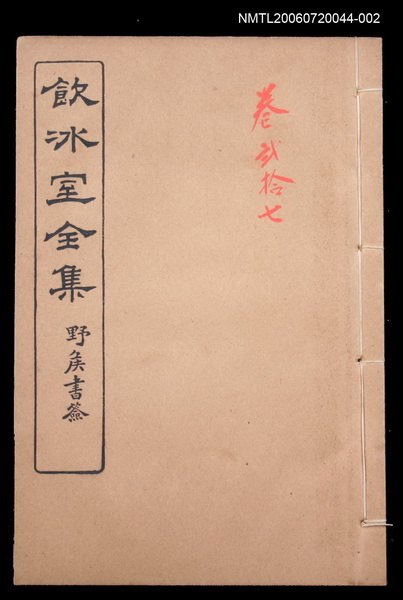 NMTL20060720044-002
卷貳拾七
飲冰室全集
野矦書籤